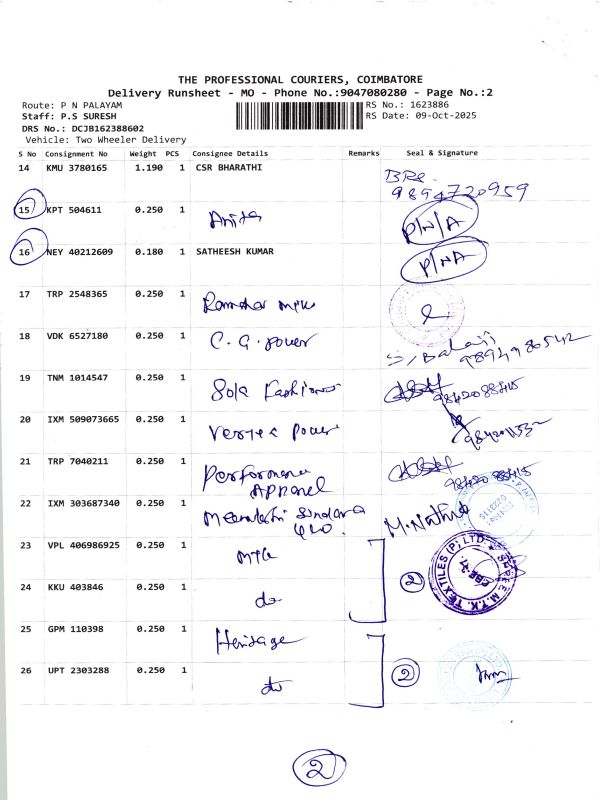 THE PROFESSIONAL COURIERS, COIMBATORE
Delivery Runsheet - MO - Phone No.:9047080280 - Page No.:2
Route: P N PALAYAM RS No.: 1623886
Staff: P.S SURESH RS Date: 09-Oct-2025
DRS No.: DCJB162388602
Vehicle: Two Wheeler Delivery
S No Consignment No Weight PCS Consignee Details Remarks Seal & Signature
14 KMU 3780165 1.190 1 CSR BHARATHI
9894720959
15 KPT 504611 0.250 1 Anita P/N/A
16 NEY 40212609 0.180 1 SATHEESH KUMAR P/NA
17 TRP 2548365 0.250 1
18 VDK 6527180 0.250 1 C.G. power S/Balaji
9894986542
19 TNM 1014547 0.250 1 Fashions 9842088415
20 IXM 509073665 0.250 1 power
21 TRP 7040211 0.250 1 Performance
Apparel 9842088415
22 IXM 303687340 0.250 1 Meenakshi
23 VPL 406986925 0.250 1 MTK 2 SHREE M.T.K. TEXTILES (P) LTD. CBE-37
24 KKU 403846 0.250 1 do
25 GPM 110398 0.250 1 Heritage 2
26 UPT 2303288 0.250 1 do
2